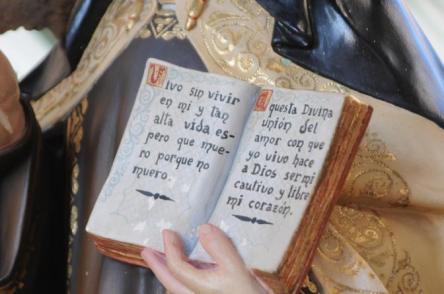 Vivo sin vivir
en mi y tan
alta vida es-
pero que mue-
ro porque no
muero.
Aquesta Divina
unión del
amor con que
yo vivo hace
a Dios ser mi
cautivo y libre
mi corazón.